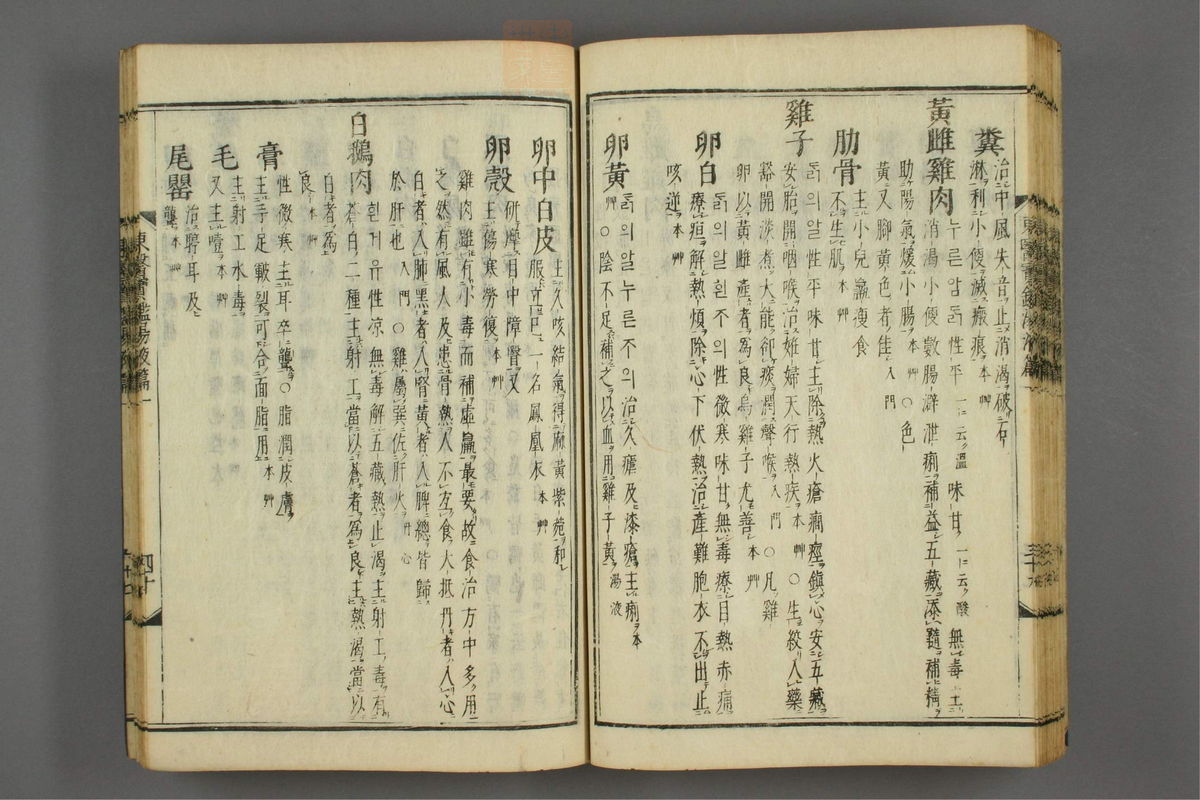 糞 治中風失音止消渴破石
淋利小便滅瘢痕 本艸
黃雌雞肉 누른암둙 性平 一云溫 味甘 一云酸 無毒主
消渴小便數腸澼泄痢補益五藏添髓補精
助陽氣煖小腸 本艸 ○色
黃又腳黃色者佳 入門
肋骨 主小兒羸瘦食
不生肌 本艸
雞子 둙의알 性平味甘主除熱火瘡癎痙鎭心安五藏
安胎開咽喉治姙婦天行熱疾 本艸 ○生絞入藥
豁開淡煮大能卻痰潤聲喉 入門 ○凡雞
卵以黃雌產者爲良烏雞子尤善 本艸
卵白 둙의알흰ᄌᆞ의 性微寒味甘無毒療目熱赤痛
療疸解熱煩除心下伏熱治產難胞衣不出止
咳逆 本艸
卵黃 둙의알누른ᄌᆞ의 治久瘧及漆瘡主痢 本
艸 ○陰不足補之以血用雞子黃 湯液
卵中白皮 主久咳結氣得麻黃紫菀和
服立已一名鳳凰衣 本艸
卵殼 硏摩目中障瞖又
主傷寒勞復 本艸
雞肉雖有小毒而補虛羸最要故食治方中多用
之然有風人及患骨熱人不宜食大抵丹者入心
白者入肺黑者入腎黃者入脾總皆歸
於肝也 入門 ○雞屬巽佐肝火 丹心
白鵝肉 흰거유 性凉無毒解五藏熱止渴主射工毒有
蒼白二種主射工當以蒼者爲良主熱渴當以
白者爲
良 本艸
膏 性微寒主耳卒聾○脂潤皮膚
主手足皸裂可合面脂用 本艸
毛 主射工水毒
又主噎 本艸
尾罌 治聤耳及
聾 本艸
東醫寶鑑湯液篇一
四十